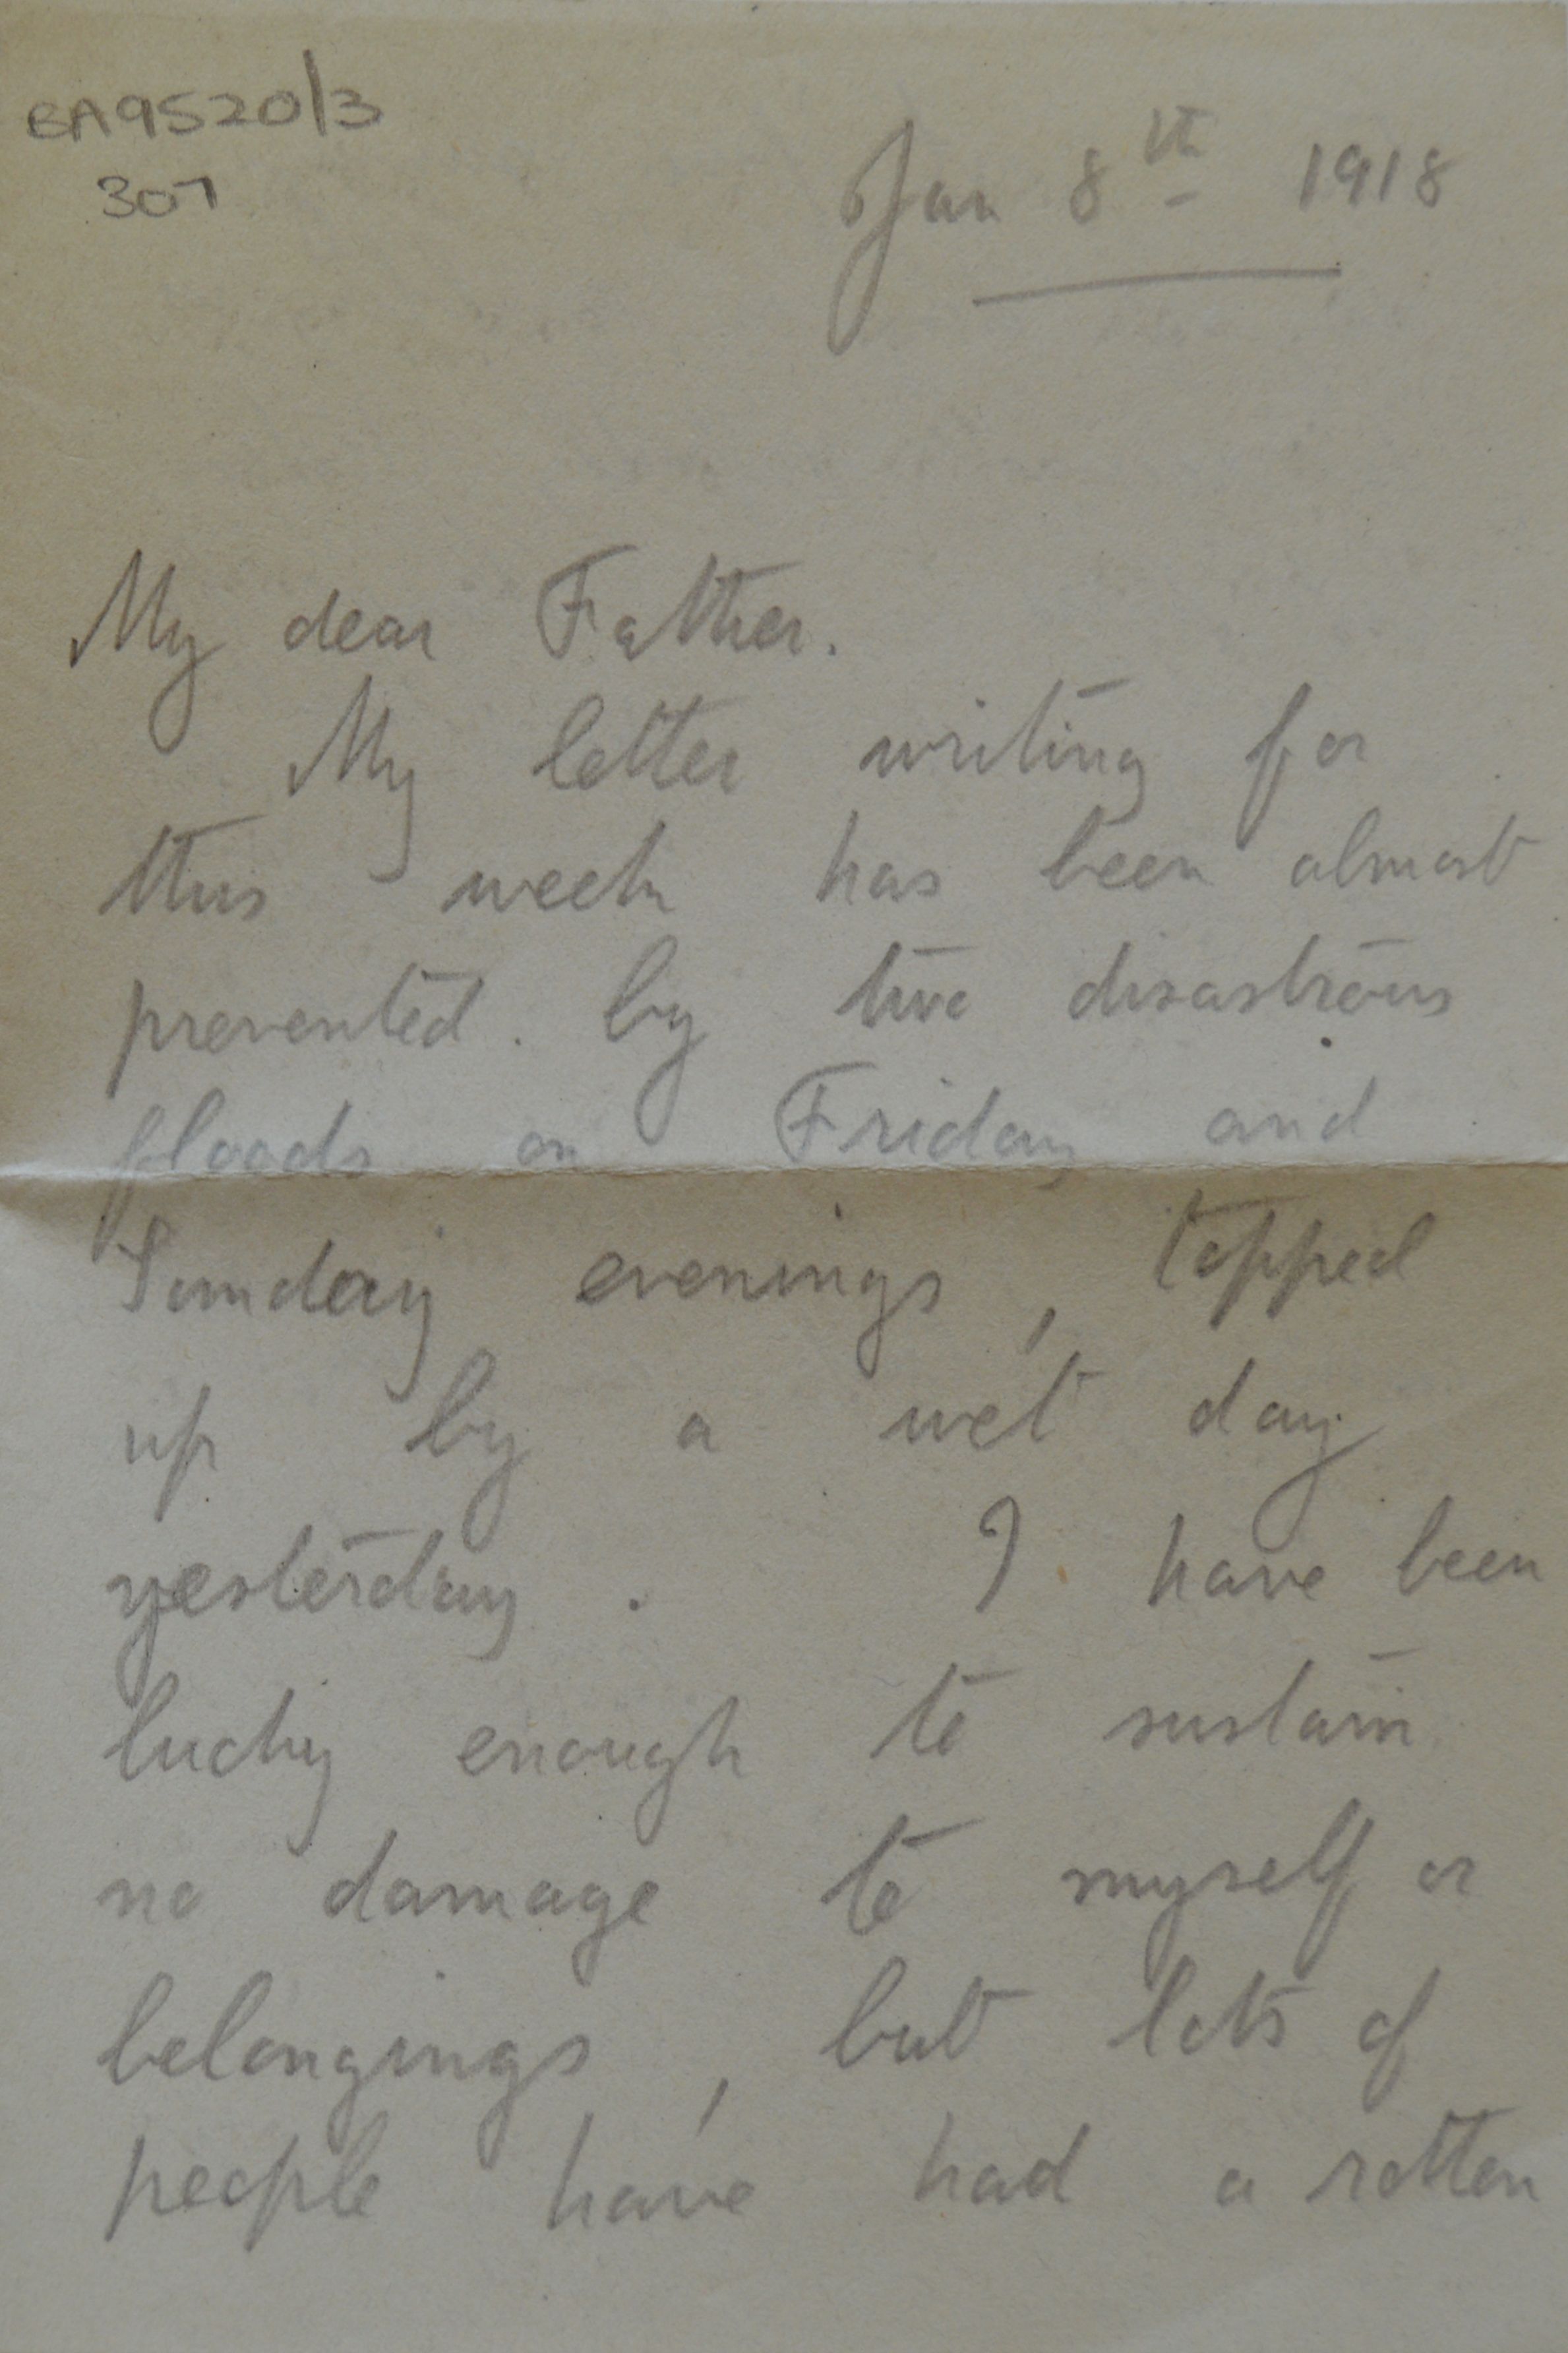 BA9520/3
307
Jan 8th 1918
My dear Father.
My letter writing for
this week has been almost
prevented. by two disastrous
floods on Friday and
Sunday evenings, topped
up by a wet day
yesterday. I have been
lucky enough to sustain
no damage to myself or
belongings, but lots of
people have had a rotten